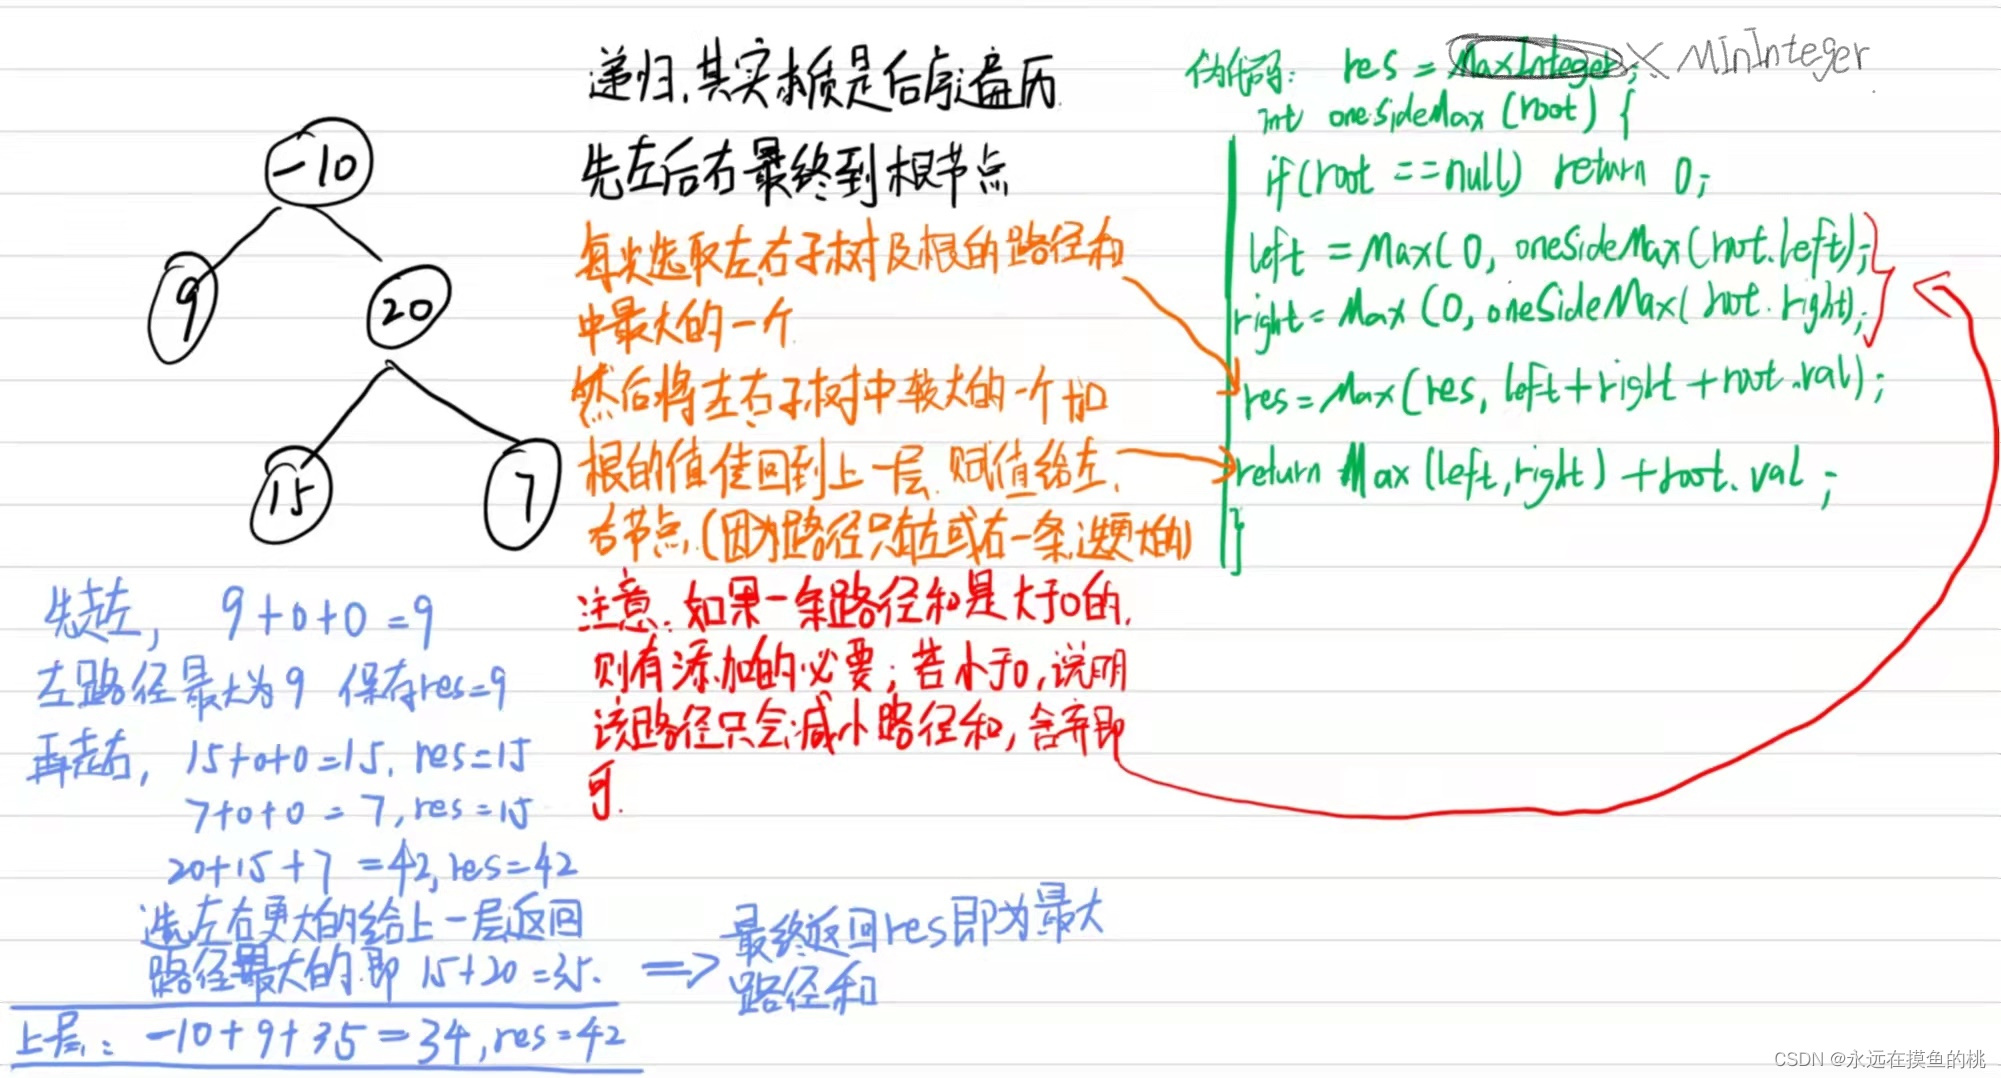 -10
9
20
15
7
递归,其实本质是后序遍历
先左后右最终到根节点
每次选取左、右子树及根的路径和
中最大的一个
然后将左、右子树中较大的一个加
根的值佳回到上一层.赋值给左、
右节点.(因为路径只有左或右一条,选更大的)
注意:如果一条路径和是大于0的,
则有添加的必要;若小于0,说明
该路径只会减小路径和,舍弃即
可.
伪代码: res = MaxInteger; × MinInteger
int oneSideMax (root) {
if(root ==null) return 0;
left = Max( 0, oneSideMax(root.left);
right = Max (0, oneSideMax( root.right);
res=Max(res, left+right+root.val);
return Max (left,right) +root.val ;
}
先走左, 9+0+0=9
左路径最大为9 保存res=9
再走右, 15+0+0=15, res=15
7+0+0 = 7,res=15
20+15+7 =42,res=42
选左右更大的给上一层返回
路径最大的.即 15+20=35.
上层: -10+9+35=34,res=42
=> 最终返回res即为最大
路径和
CSDN @永远在摸鱼的桃